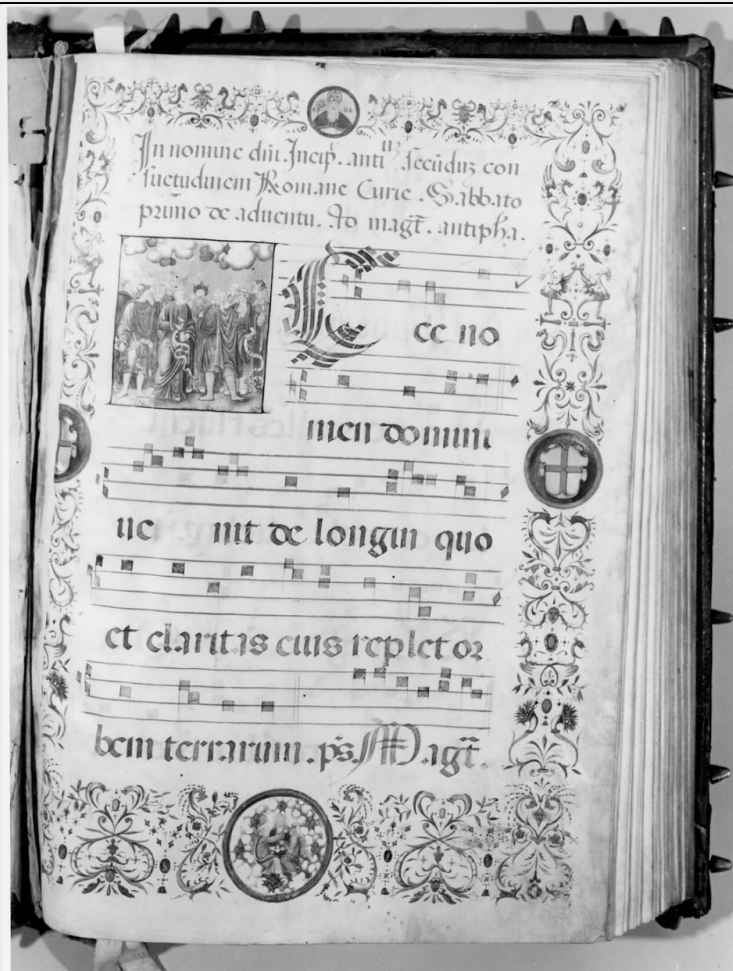 In nomine dñi. Incip̃. anti secũduz con
suetudinem Romane Curie. Sabbato
primo de aduentu. Ad magt̃. antipha.
Ecce no
men domini
ue nit de longin quo
et claritas eius replet or
bem terrarum. ps. Magt̃.